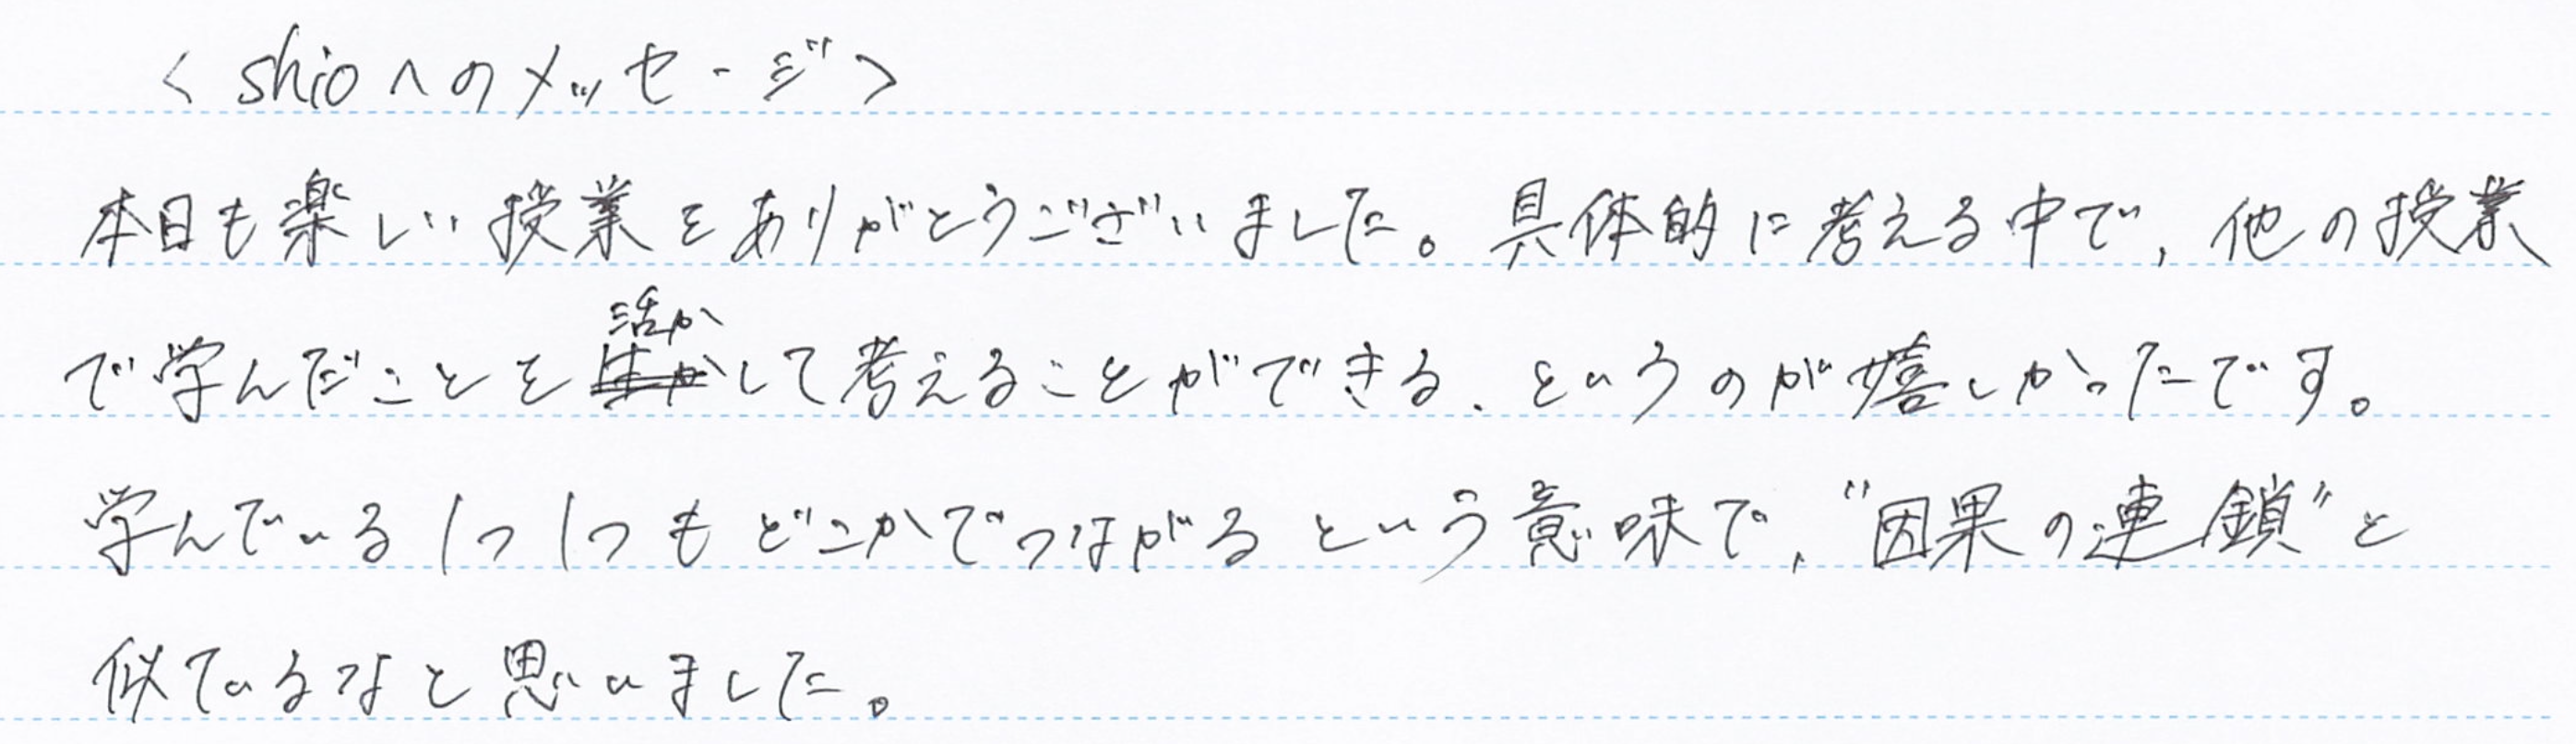 〈shioへのメッセージ〉
本日も楽しい授業をありがとうございました。具体的に考える中で,他の授業
で学んだことを活かして考えることができる、というのが嬉しかったです。
学んでいる1つ1つもどこかでつながるという意味で,“因果の連鎖”と
似ているなと思いました。